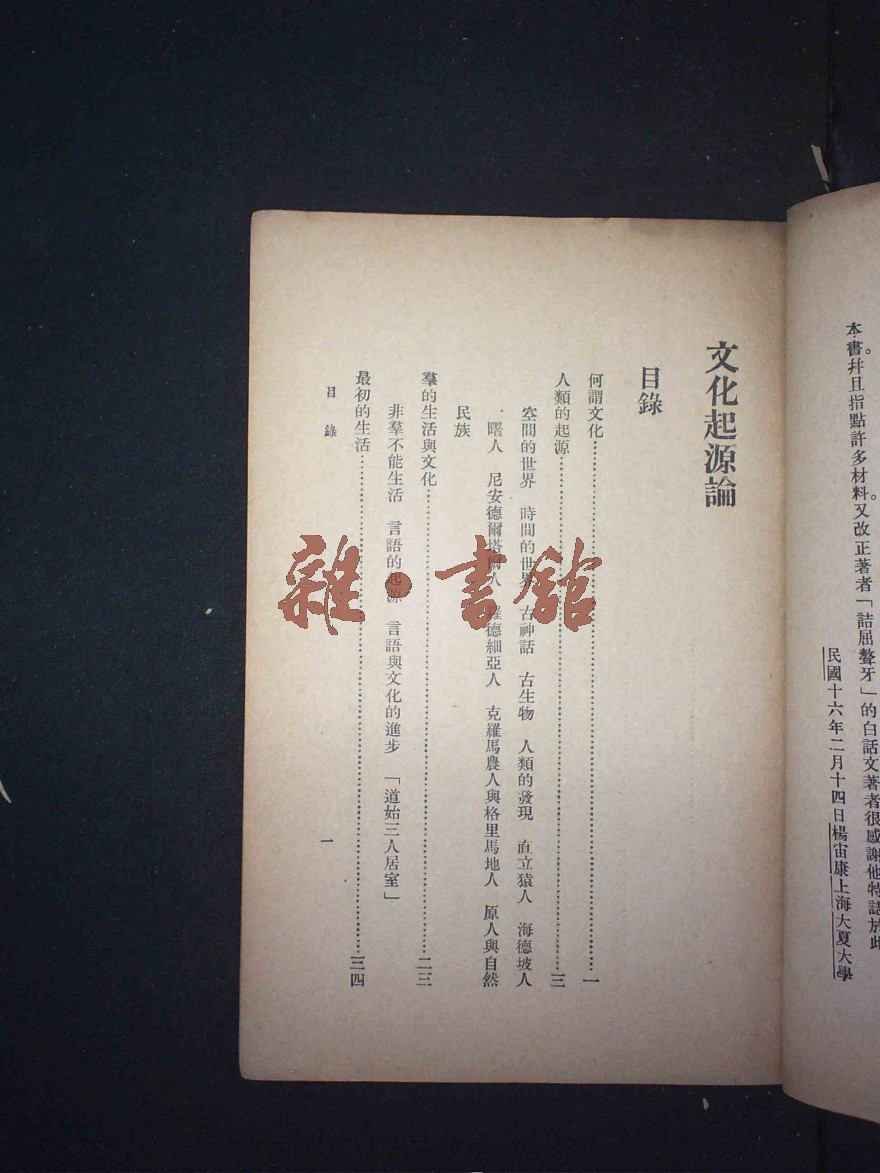 本書幷且指點許多材料。又改正著者「詰屈聱牙」的白話文著者很感謝他特誌於此。
民國十六年二月十四日楊宙康上海大夏大學
文化起源論
目錄
何謂文化……一
人類的起源……三
空間的世界　時間的世界　古神話　古生物　人類的發現　直立猿人　海德坡人
曙人　尼安德爾塔爾人　羅德細亞人　克羅馬農人與格里馬地人　原人與自然
民族
羣的生活與文化……二三
非羣不能生活　言語的起源　言語與文化的進步　「道始三人居室」
最初的生活……三四
目錄
一
雜·書館